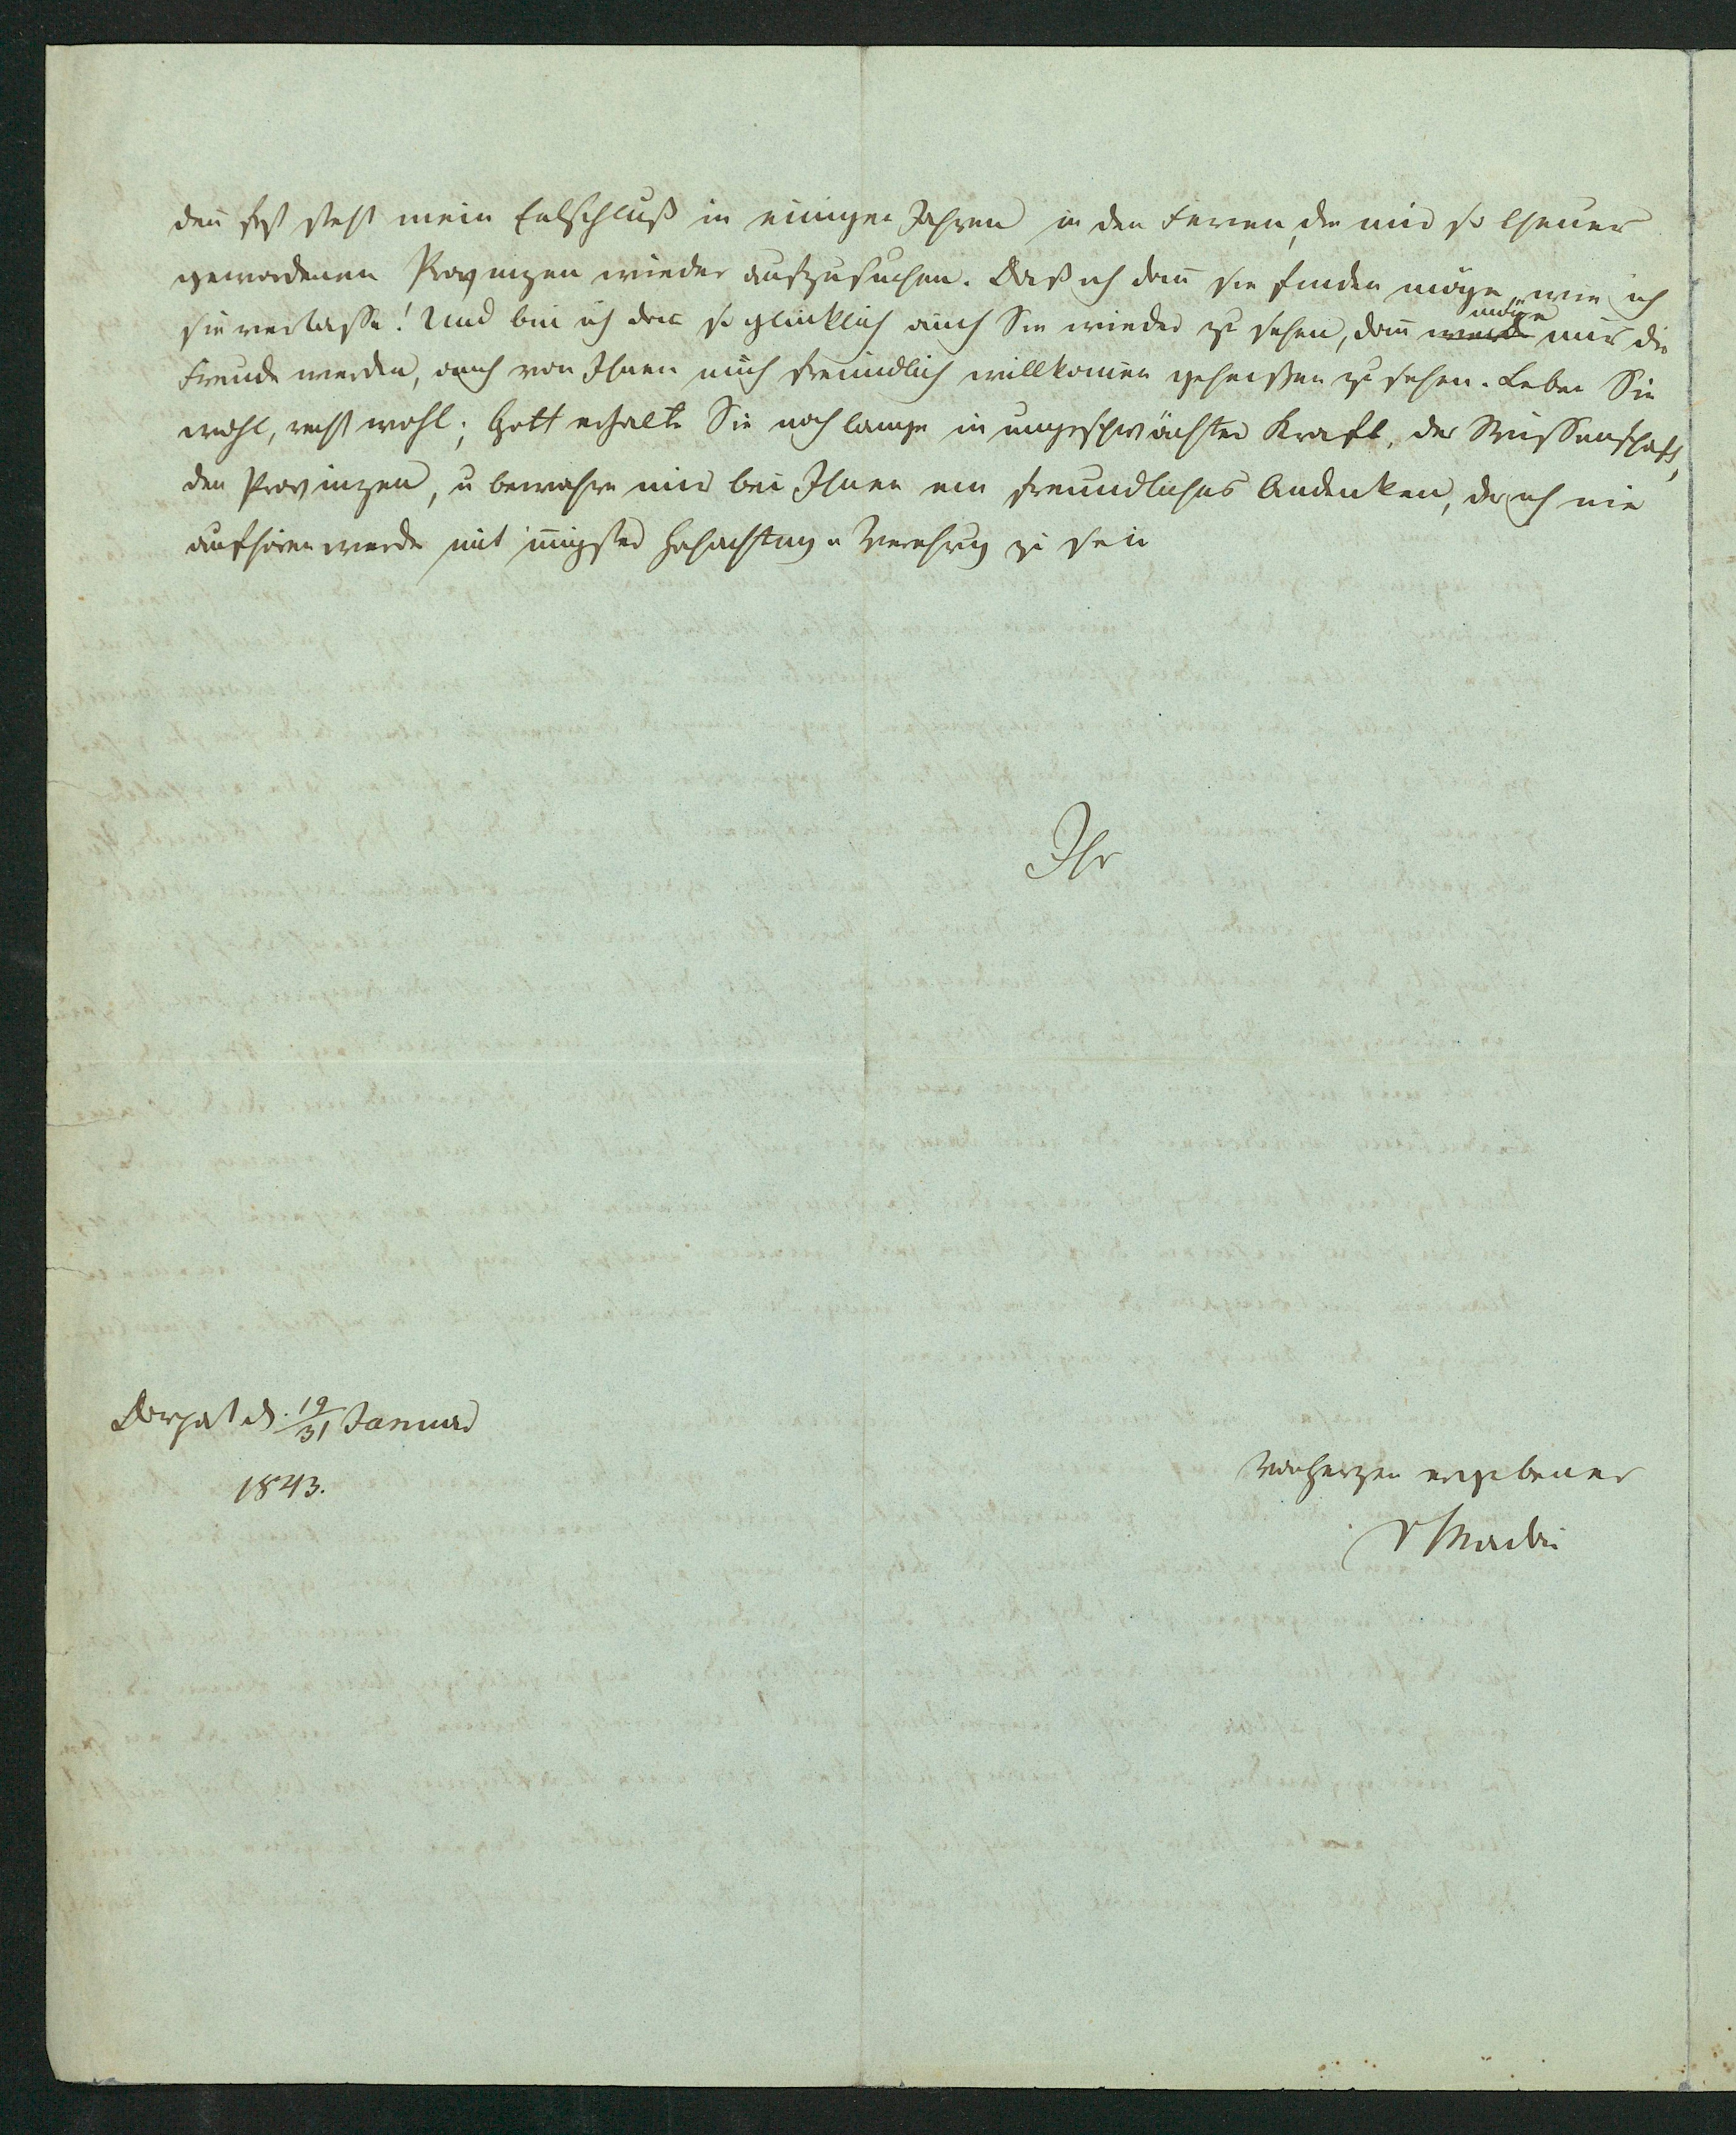 den̄ fest steht mein Entschluß in einigen Jahren in den Ferien, die mir so theuer
gewordenen Provinzen wieder aufzusuchen. Daß ich dan̄ sie finden möge, wie ich
sie verlasse! Und bin ich dan̄ so glücklich auch Sie wieder zu sehen, dan̄ möge mir die
Freude werden, auch von Ihnen mich freundlich willkom̄en geheißen zu sehen. Leben Sie
wohl, recht wohl; Gott erhalte Sie noch lange in ungeschwächter Kraft, der Wissenschaft,
den Provinzen, u bewahre mir bei Ihnen ein freundliches Andenken, der ich nie
aufhören werde mit in̄igster Hochachtung u Verehrung zu sein
Ihr
Dorpat d. 19/31 Januar
1843.
von Herzen ergebener
v Madai